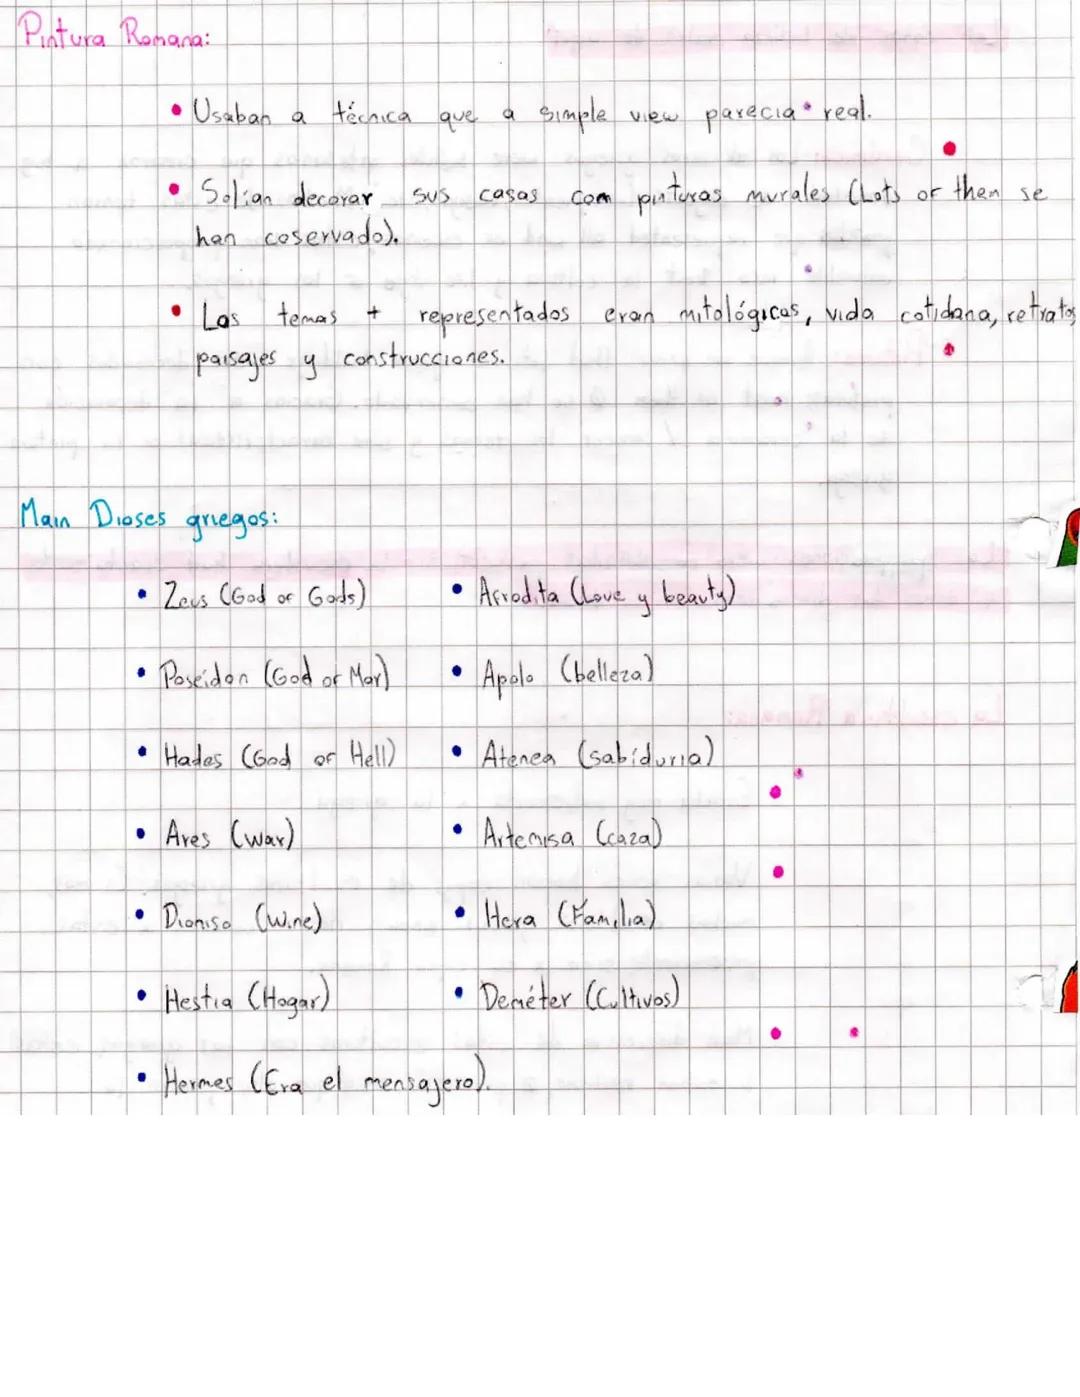 Pintura Romana:
• Usaban a técnica que a simple view parecia real.
• Solian decorar sus casas com pinturas murales (Lots of them se
han coservado).
• Los temas + representados eran mitológicos, vida cotidana, retratos
paisajes y construcciones.
Main Dioses griegos:
• Zeus (God of Gods)
• Afrodita (Love y beauty)
• Poseidon (God of Mar)
• Apolo (belleza)
• Hades (God of Hell)
• Atenea (sabiduria)
• Ares (war)
• Artemisa (caza)
• Dioniso (Wine)
• Hera (Familia)
• Hestia (Hogar)
• Deméter (Cultivos)
• Hermes (Era el mensajero).